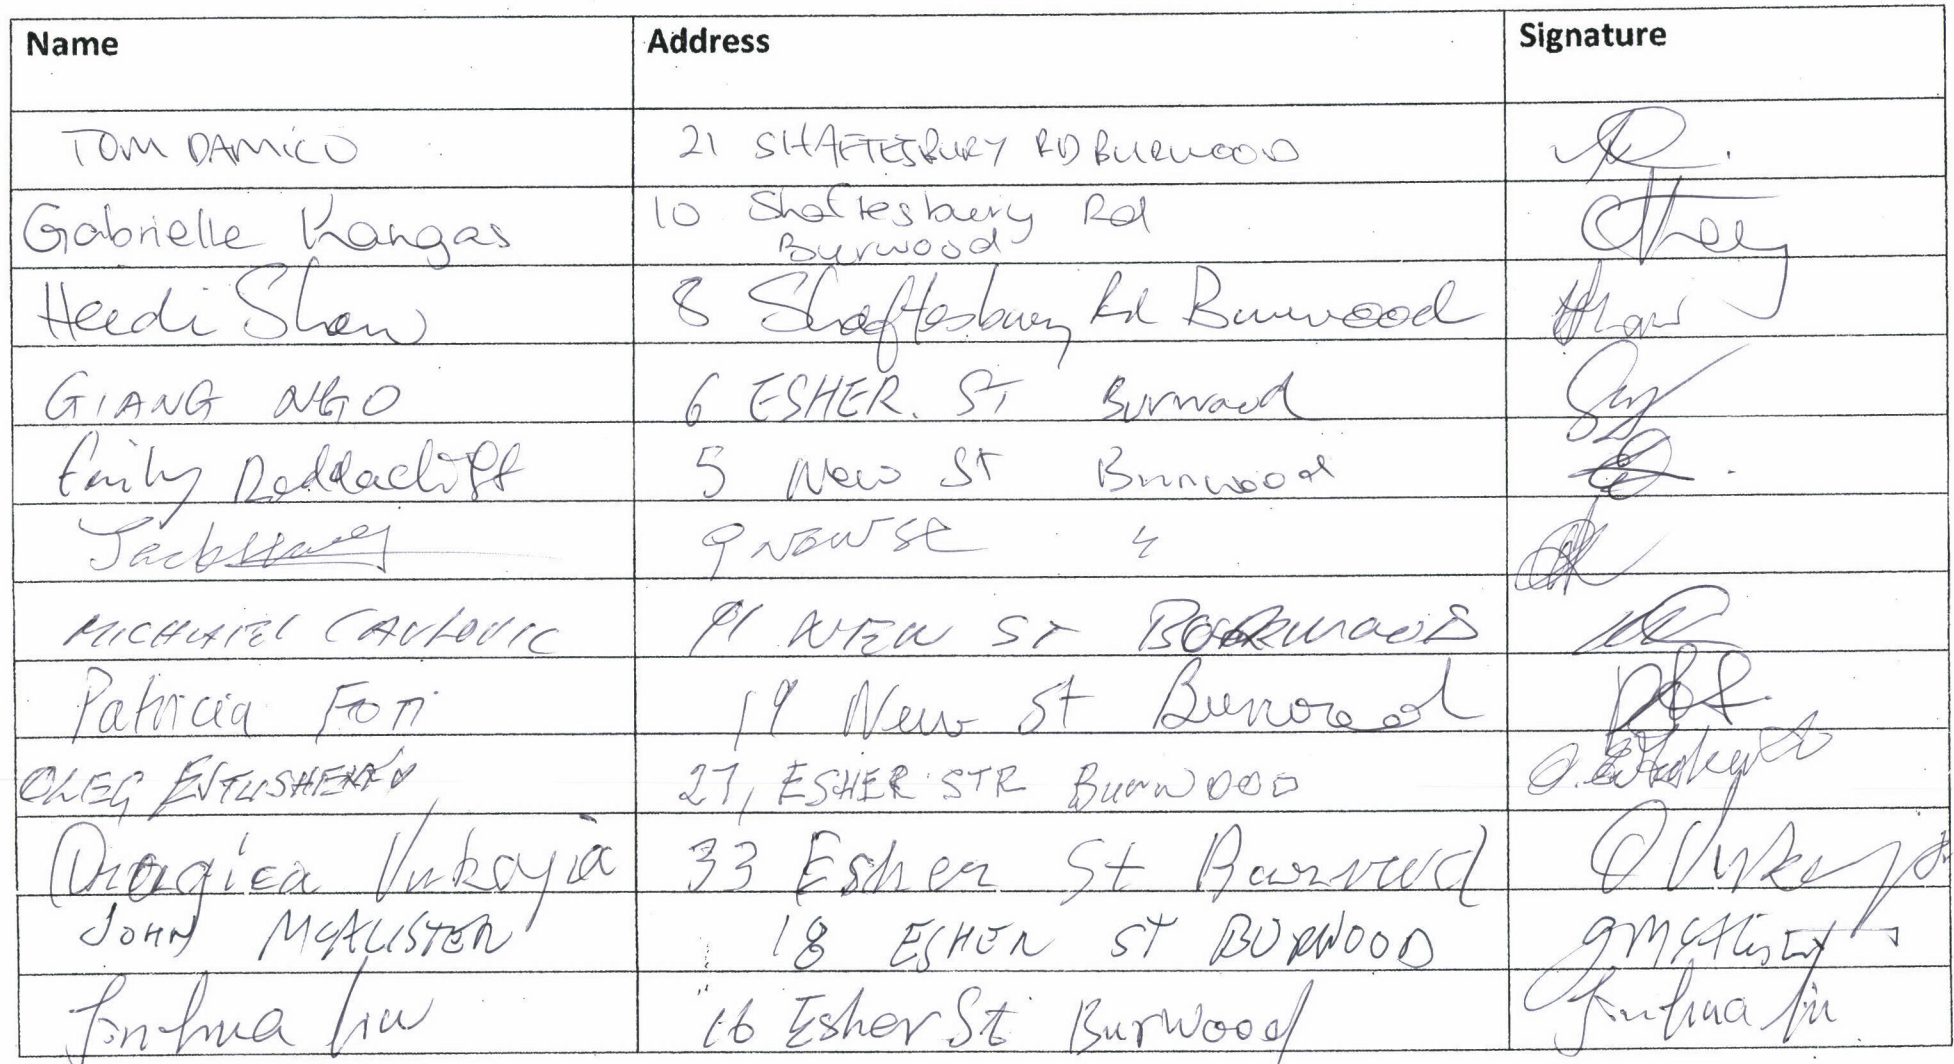 Name Address Signature
TOM DAMICO 21 SHAFTESBURY RD BURWOOD
Gabrielle Kangas 10 Shaftesbury Rd
Burwood
Heidi Shaw 8 Shaftesbury Rd Burwood
GIANG NGO 6 ESHER. ST Burwood
Emily Reddacliff 5 New St Burwood
Jack 9 NEW St "
MICHAEL CAVLOVIC 11 NEW ST BOORWOOD
Patricia Foti 19 New St Burwood
OLEG EVTUSHENKO 27, ESHER STR BURWOOD
Dragica Vukoja 33 Esher St Burwood
JOHN MCALISTER 18 ESHER ST BURWOOD J McAlister
Jinhua Liu 16 Esher St Burwood Jinhua Liu